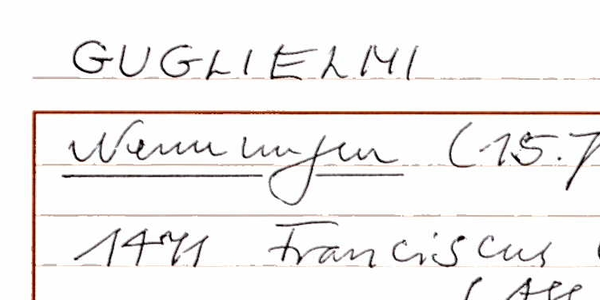 GUGLIELMI
Nennungen (15.7
1471 Franciscus (
(